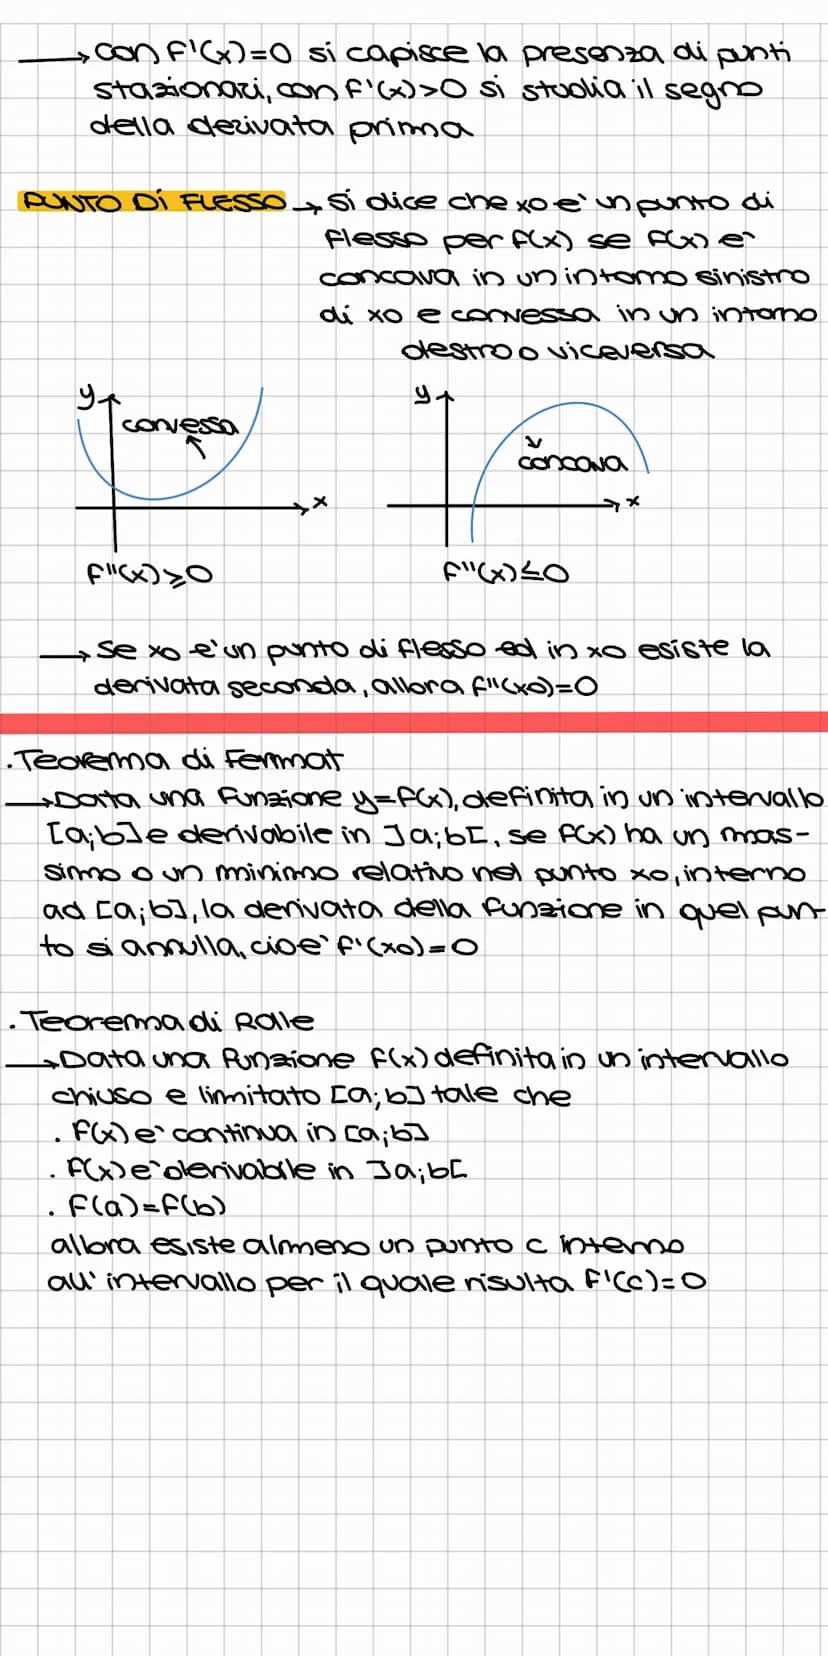 → con f'(x)=0 si capisce la presenza di punti
stazionari, con f'(x)>0 si studia il segno
della derivata prima
PUNTO DI FLESSO → si dice che x0 e' un punto di
flesso per f(x) se f(x) e'
concava in un intorno sinistro
di x0 e convessa in un intorno
destro o viceversa
y
convessa
x
f''(x)⩾0
y
concava
x
f''(x)≤0
→ se x0 e' un punto di flesso ed in x0 esiste la
derivata seconda, allora f''(x0)=0
. Teorema di Fermat
→ Data una funzione y=f(x), definita in un intervallo
[a;b] e derivabile in ]a;b[, se f(x) ha un mas-
simo o un minimo relativo nel punto x0, interno
ad [a;b], la derivata della funzione in quel pun-
to si annulla, cioe' f'(x0)=0
. Teorema di Rolle
→ Data una funzione f(x) definita in un intervallo
chiuso e limitato [a;b] tale che
. f(x) e' continua in [a;b]
. f(x) e' derivabile in ]a;b[
. f(a)=f(b)
allora esiste almeno un punto c interno
all'intervallo per il quale risulta f'(c)=0